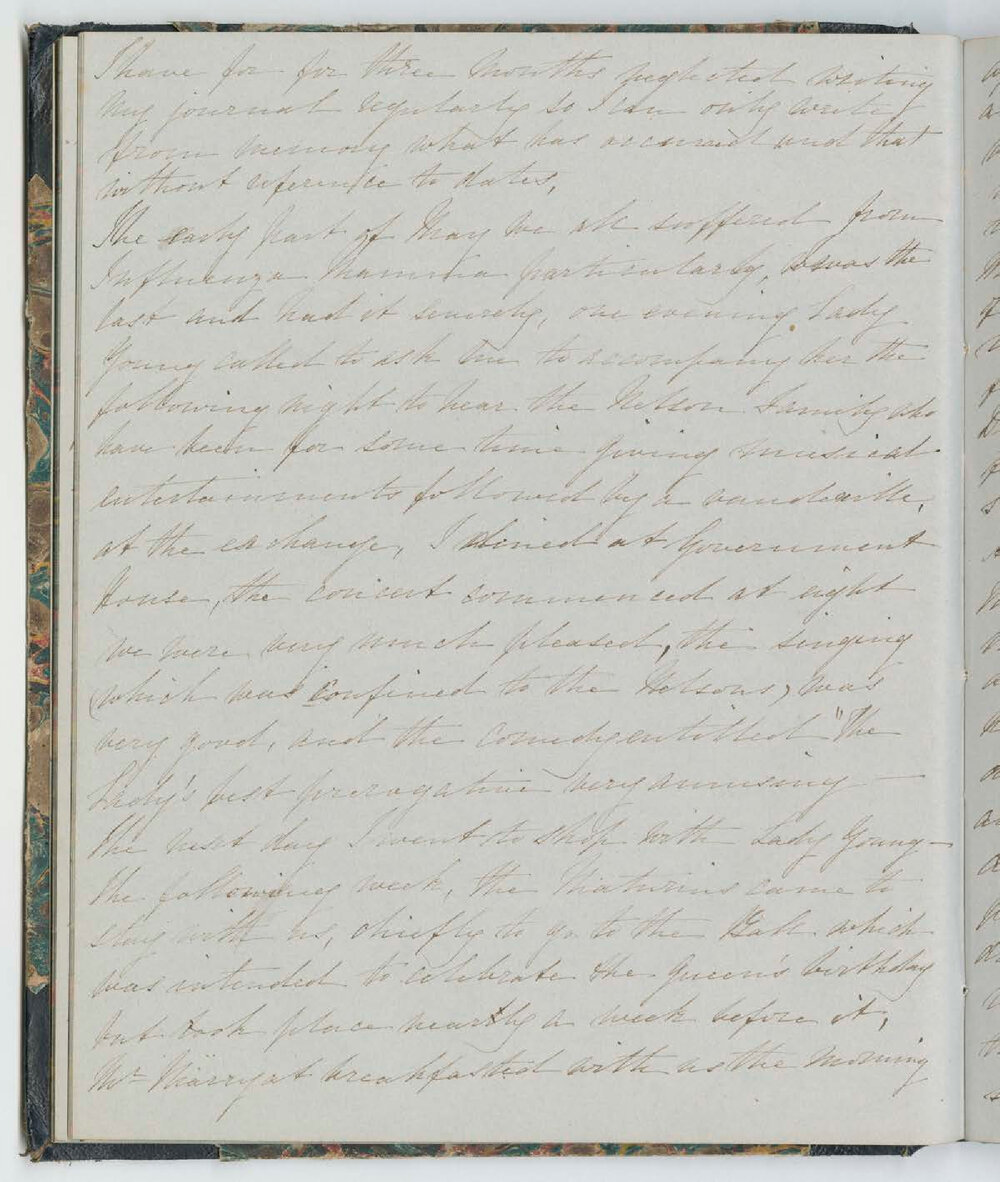 I have for for three months neglected writing
my journal regularly so I can only write
from memory what has occurred and that
without reference to dates,
The early part of May we all suffered from
Influenza Mamma particularly, was the
last and had it severely, one evening Lady
Young called to ask me to accompany her the
following night to hear the Nelson Family who
have been for some time giving musical
entertainments followed by a vaudeville,
at the exchange, I dined at Government
House, the concert commenced at eight
we were very much pleased, the singing
(which was confined to the Nelsons) was
very good, and the comedy entitled "The
Lady's best prerogative very amusing —
the next day I went to shop with Lady Young —
the following week, the Maturins came to
stay with us, chiefly to go to the Ball which
was intended to celebrate the Queen's birthday
but took place nearly a week before it,
Mr Marryat breakfasted with us the morning